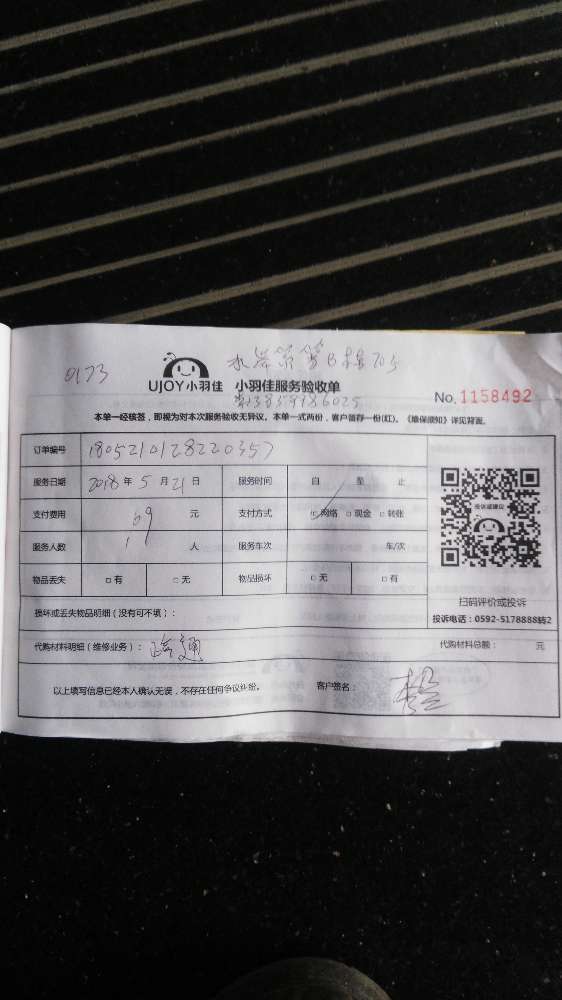 0173
UJOY小羽佳 小羽佳服务验收单
No. 1158492
本单一经核签,即视为对本次服务验收无异议。本单一式两份,客户留存一份(红)。《维保须知》详见背面。
订单编号 180521012822035
服务日期 2018年 5月 21日 服务时间 自 至 止
支付费用 69 元 支付方式 网络 现金 转账
服务人数 1 人 服务车次 车/次
物品丢失 有 无 物品损坏 无 有
投诉或建议
扫码评价或投诉
投诉电话:0592-5178888转2
损坏或丢失物品明细(没有可不填):
代购材料明细(维修业务): 代购材料总额: 元
以上填写信息已经本人确认无误,不存在任何争议纠纷。 客户签名: